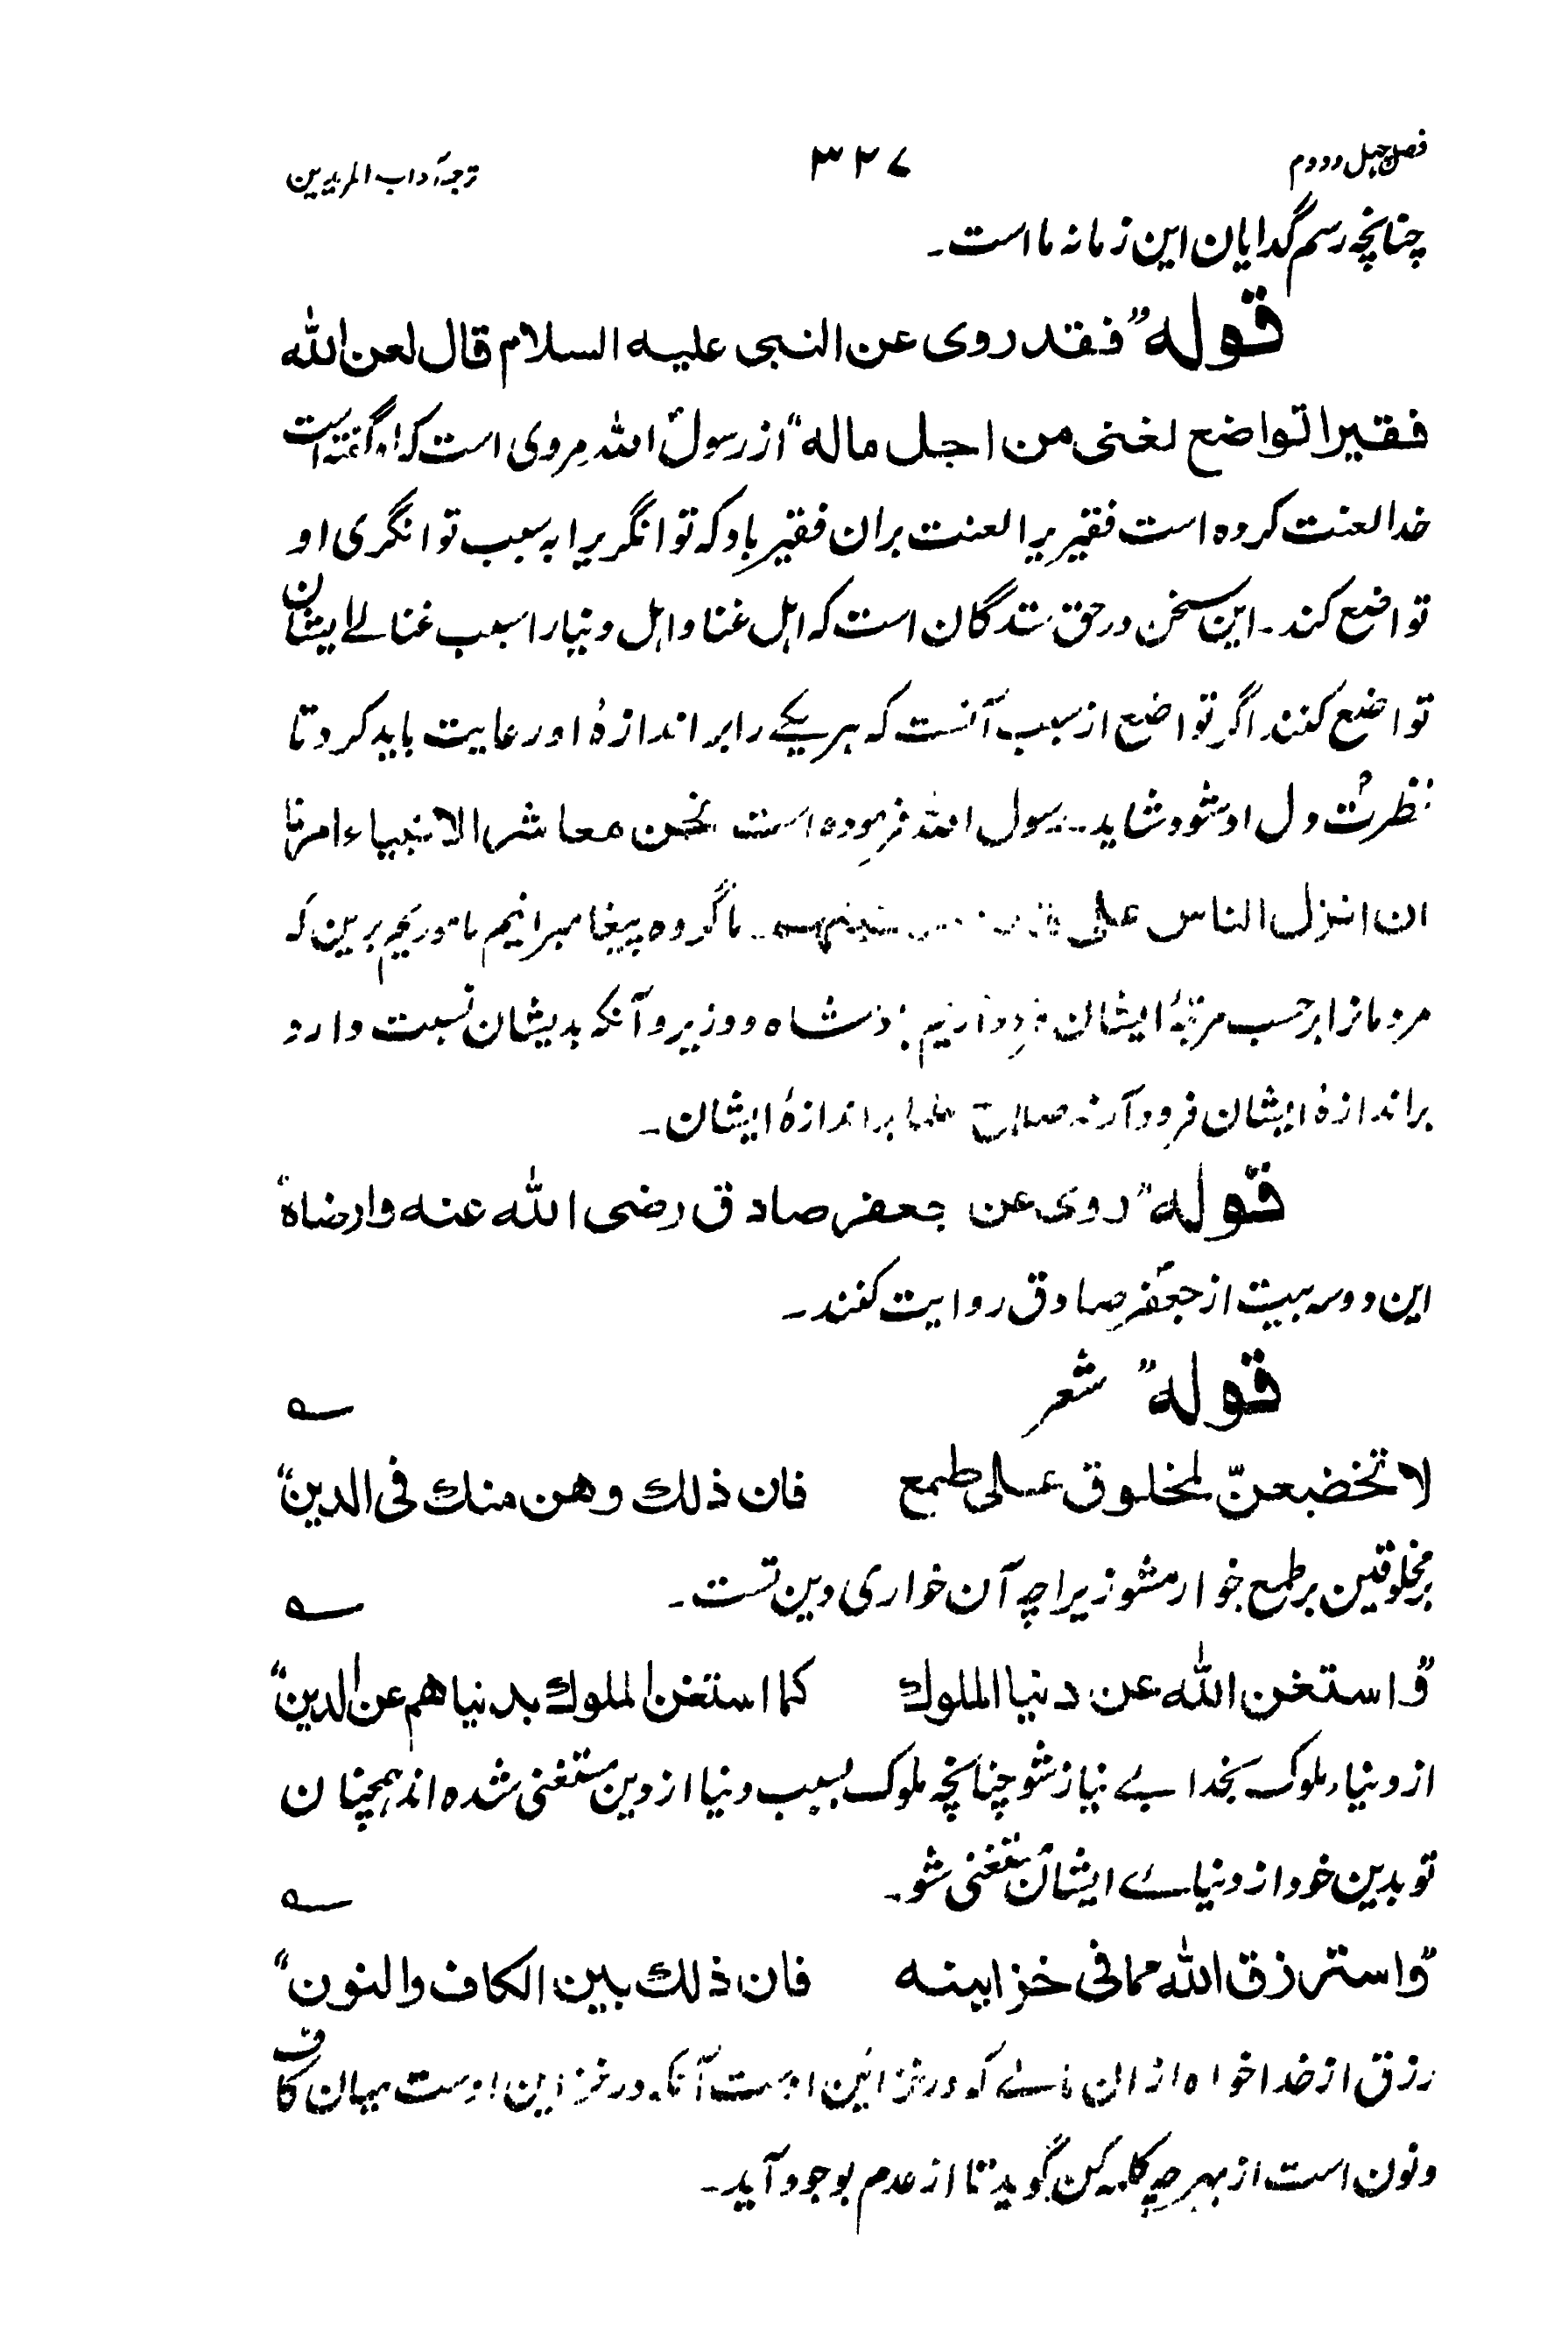 فصل چہل و دوم ۳۲۷ ترجمہ آداب المریدین
چنانچہ رسم گدایان این زمانہ ما است۔
قولہ "فقد روی عن النبی علیہ السلام قال لعن اللہ
فقیرا تواضع لغنی من اجل مالہ" از رسول اللہ مروی است کہ او گفتہ است
خدا لعنت کردہ است فقیریرا لعنت بران فقیر باد کہ توانگریرا بہ سبب توانگری او
تواضع کند۔ این سخن در حق گدایان است کہ اہل غنا و اہل دنیا را سبب غنائے ایشان
تواضع کنند اگر تواضع از سبب آنست کہ ہر یکے را بر اندازۂ او رعایت باید کرد تا
دل او شود شاید۔ رسول اللہ فرمودہ است نحن معاشر الانبیاء امرنا
ان انزل الناس علی ما گروہ پیغامبرانیم ماموریم برین کہ
مردمانرا برحسب مرتبۂ ایشان وزیر و آنکہ بدیشان نسبت دارد
بر اندازۂ ایشان فرود آرند بر اندازۂ ایشان۔
قولہ "روی عن جعفر صادق رضی اللہ عنہ وارضاہ"
این دو سہ بیت از جعفر صادق روایت کنند۔
قولہ" شعر
لا تخضعنّ لمخلوق علی طمع فان ذلک وھن منک فی الدین"
بر مخلوقین بر طمع خوار مشو زیرا چہ آن خواری دین تست۔
"واستغن اللہ عن دنیا الملوک کما استغنی الملوک بدنیاھم عن الدین"
از دنیاء ملوک بخدا بے نیاز شو چنانچہ ملوک بسبب دنیا از دین مستغنی شدہ اند ہمچنان
تو بدین خود از دنیائے ایشان مستغنی شو۔
"واسترزق اللہ مما فی خزاینہ فان ذلک بین الکاف والنون"
رزق از خدا خواہ ازان کہ در خزائین اوست آنکہ در خزاین اوست میان کاف
و نون است از بہر چہ کلمہ کن گوید تا از عدم بوجود آید۔